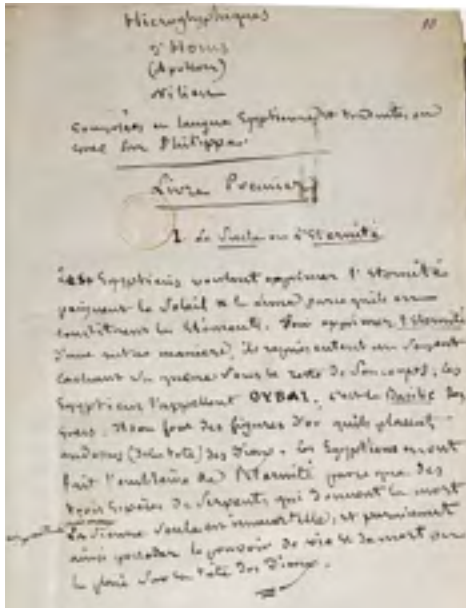 Hieroglyphiques
d'Horus
(Apollon)
Niliaen
Composées en langue Egyptienne et traduites en
grec par Philippe.
Livre Premier
1. Le Siecle ou l'Eternité
Les Egyptiens voulant exprimer l'eternité
peignent le Soleil & la lune parce qu'ils en
constituent les Eléments. Pour exprimer l'Eternité
d'une autre maniere, ils representent un Serpent
cachant sa queue sous le reste de son corps; les
Egyptiens l'appellent ΟΥΒΑΙ, c'est le Basilic des
grecs. Ils en font des figures d'or qu'ils placent
audessus (de la tete) des Dieux. Les Egyptiens en ont
fait l'emblème de l'Eternité parce que des
trois Especes de Serpents qui donnent la mort
la Sienne Seule est immortelle, et
ainsi posseder le pouvoir de vie & de mort on
le place sur la tete des Dieux.